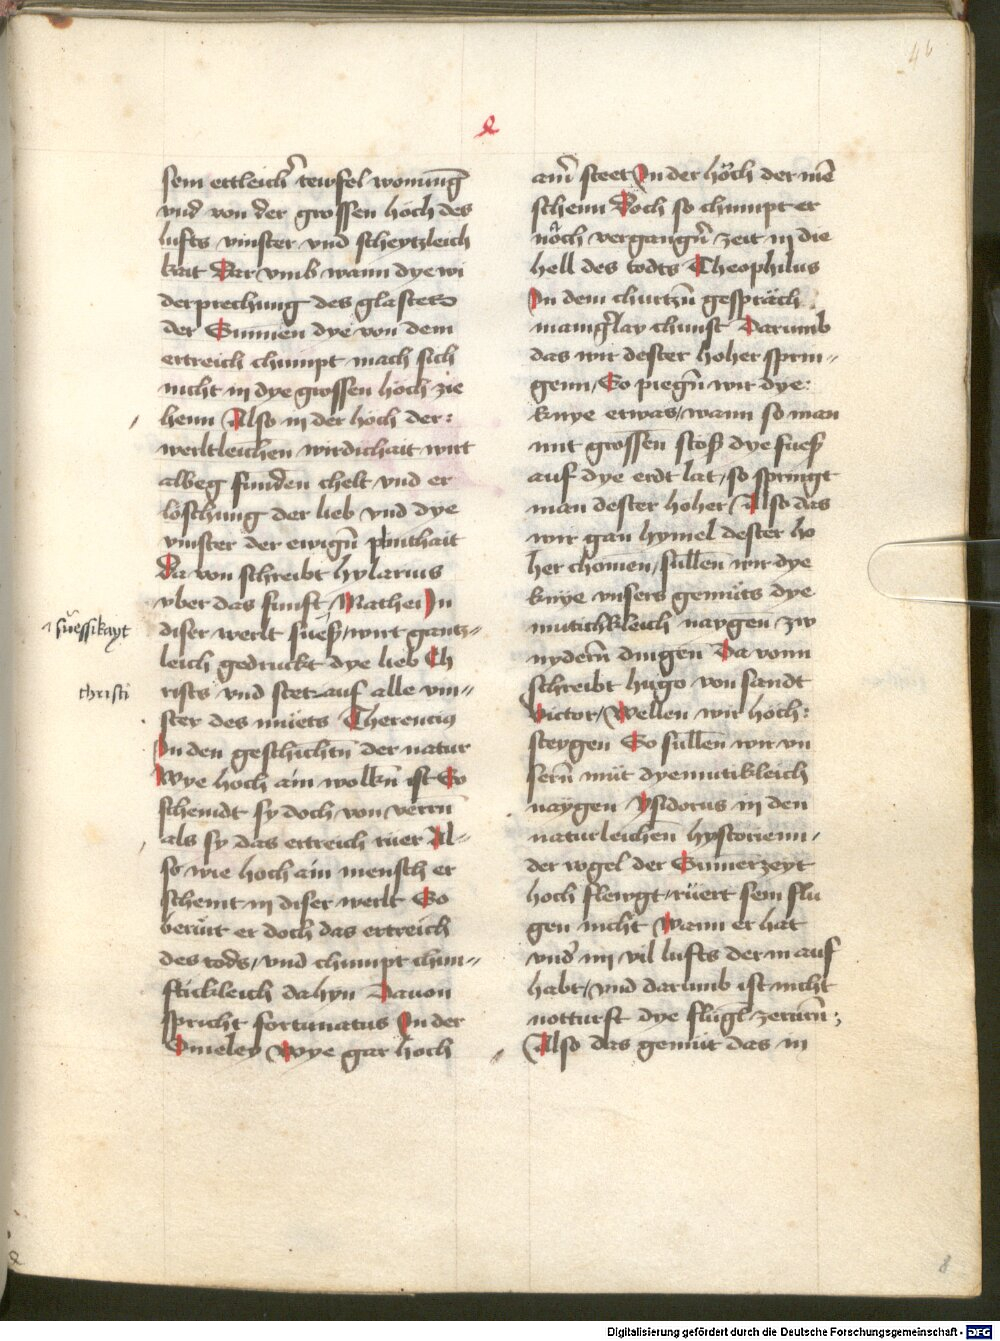 46
e
sein ettleich̄ tewfel wonunḡ
vnd̄ von der grossen höch des
lufts vinster vnd scheytzleich
kait Dar vmb wann dye wi
derprechung des glastes
der Sunnen dye von dem
ertreich chumpt mach sich
nicht in dye grossen höch zie
henn Also in der höch der:
werltleichen wirdichait wirt
albeg funden chelt vnd er
löschung der lieb vnd dye
vinster der ewigñ plinthait
Da von schreibt hylarius
vber das funft Mathei In
diser werlt suess/wirt gantz-
leich gedruckt dye lieb Ch
rists vnd stet auf alle vin-
ster des müets Therencius
In den geschichtñ der natur
Wye hoch ain wolkñ ist So
scheindt sy doch von verrñ
als sy das ertreich rüer Al-
so wie hoch ain mensch er
scheint in diser werlt So
berürt er doch das ertreich
des tods/vnd chumpt chün-
ftickleich dahyn Dauon
spricht fortunatus In der
Omeley Wye gar hoch
süessikayt
christi
ainr̄ steet In der höch der mē
schenn Doch so chumpt er
nöch vergangñ zeit in die
hell des todts Theophilus
In dem churtzñ gespräch
manigl̄ay chunst Darumb
das wir dester hoher sprin-
genn/So piegñ wir dye:
knye etwas/wann so man
mit grossen stoss dye fuess
auf dye erdt lat/so springt
man dester hoher Also das
wir gan hymel dester ho
her chömen/süllen wir dye
knye vnsers gemüts dye
mutichkleich naygen zw
nydern̄ dingen Da vonn
schreibt hugo von sandt
Victor/Wellen wir höch:
steygen So süllen wir vn
sern̄ müt dyemutikleich
naygen ysidorus in den
naturleichen hystorienn/
der vogel der Summerzeyt
hoch flewgt/rüert sein flu
gen nicht Wann er hat
vnd̄ im vil lufts der in auf
habt/vnd darumb ist nicht
notturft dye flugl̄ zerürn̄;
Also das gemüt das in
8
Digitalisierung gefördert durch die Deutsche Forschungsgemeinschaft - DFG